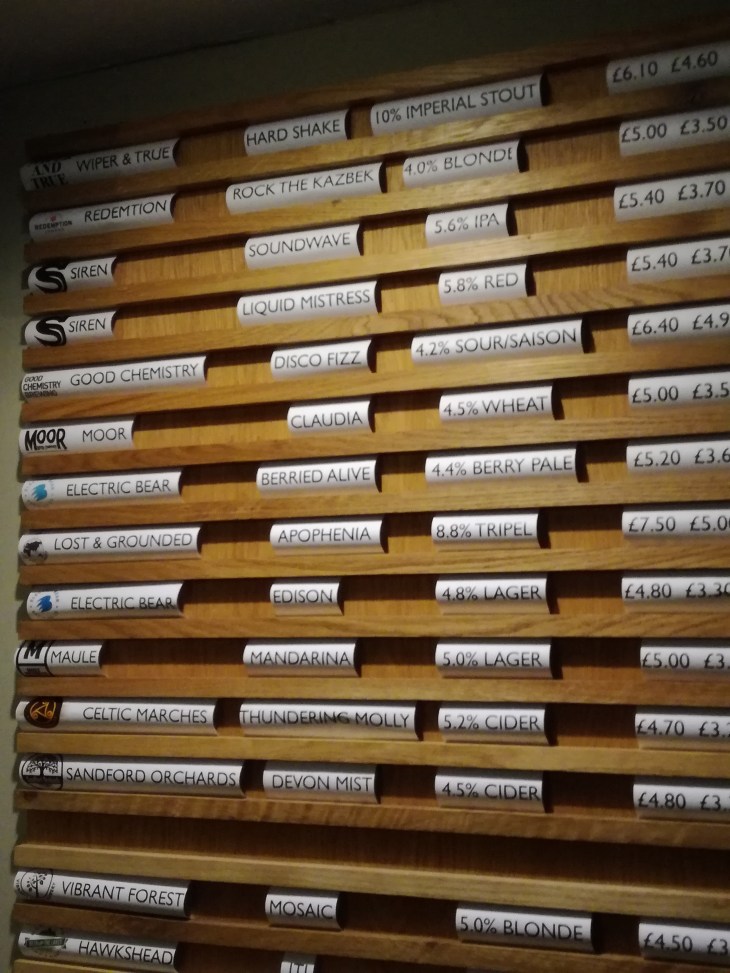 AND TRUE WIPER & TRUE HARD SHAKE 10% IMPERIAL STOUT £6.10 £4.60
REDEMPTION REDEMTION ROCK THE KAZBEK 4.0% BLONDE £5.00 £3.50
SIREN SOUNDWAVE 5.6% IPA £5.40 £3.70
SIREN LIQUID MISTRESS 5.8% RED £5.40 £3.7
GOOD CHEMISTRY GOOD CHEMISTRY DISCO FIZZ 4.2% SOUR/SAISON £6.40 £4.9
MOOR MOOR CLAUDIA 4.5% WHEAT £5.00 £3.5
ELECTRIC BEAR BERRIED ALIVE 4.4% BERRY PALE £5.20 £3.6
LOST & GROUNDED APOPHENIA 8.8% TRIPEL £7.50 £5.00
ELECTRIC BEAR EDISON 4.8% LAGER £4.80 £3.30
M MAULE MANDARINA 5.0% LAGER £5.00 £3.
CELTIC MARCHES THUNDERING MOLLY 5.2% CIDER £4.70 £3.
SANDFORD ORCHARDS DEVON MIST 4.5% CIDER £4.80 £3.
VIBRANT FOREST MOSAIC 5.0% BLONDE £4.50 £3
HAWKSHEAD